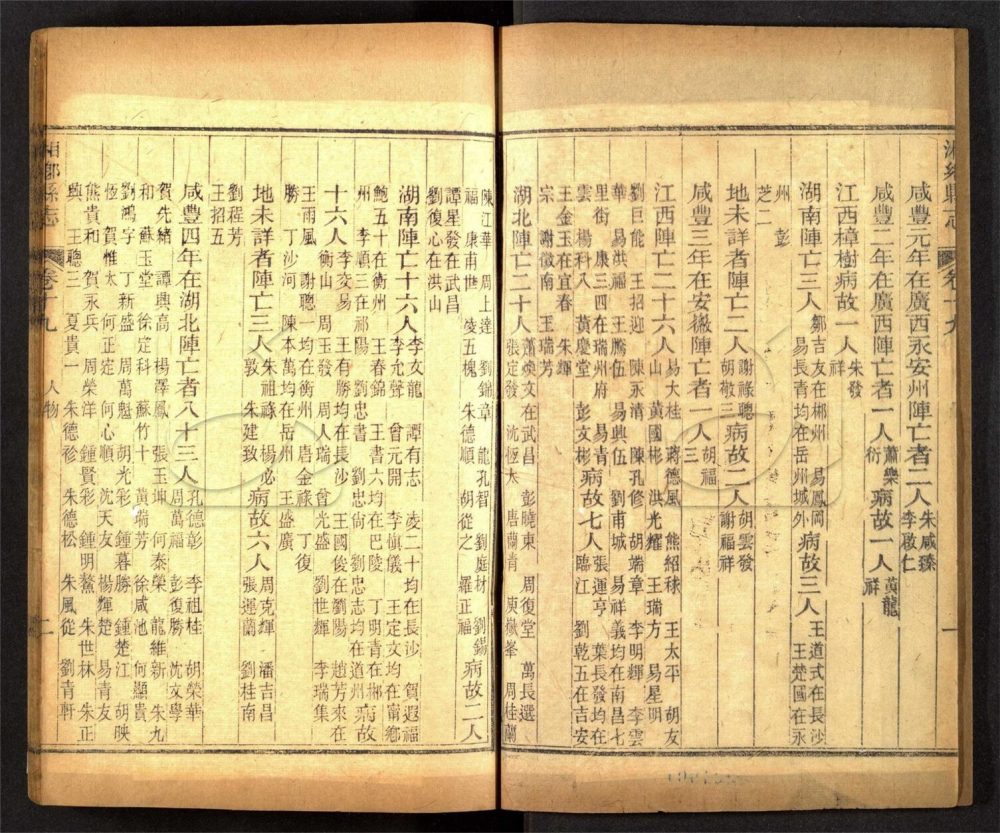 咸豐元年在廣西永安州陣亡者二人朱咸臻李啟仁
咸豐二年在廣西陣亡者一人蕭樂衍病故一人黃龍祥
江西樟樹病故一人朱發祥
湖南陣亡三人鄒吉友在郴州易鳳岡易長青均在岳州城外病故三人王道式在長沙王楚國在永
州彭芝二
地未詳者陣亡二人謝祿聰胡敬三病故二人胡雲發謝福祥
咸豐三年在安徽陣亡者一人胡福三
江西陣亡二十六人易大桂蔣德風熊紹秣王太平胡友山黃國彬洪光耀王瑞方易星明
劉巨能王招迎陳永清陳孔修胡端章李明輝李雲華易洪福王騰伍易興伍劉甫城易祥義均在南昌七
里街康三四在瑞州府易青雲楊科八黃慶堂彭文彬病故七人張運亨葉長發均在臨江劉乾五在吉安
王金玉在宜春朱輝宗謝徵南王瑞芳
湖北陣亡二十人蕭煥文在武昌彭曉東周復堂萬長選張定發沈恆太唐蘭青庾嶽峯周桂蘭
陳江華周上達劉錦章龍孔智劉庭材劉錫福康南世凌五槐朱德順胡從之羅正福病故二人
譚星發在武昌劉復心在洪山
湖南陣亡十六人李友龍譚有志凌二十均在長沙賀遐福李允聲曾元開李慎儀王定文均在甯鄉
鮑五十在衡州王春錦王書六均在巴陵丁明青在郴州李順三在祁陽劉忠書劉忠倘劉忠志均在道州病故
十六人李交易王有勝均在長沙王國俊在劉陽趙芳來在衡山周玉發周人瑞會光盛劉世輝李瑞集
王雨風謝聰一均在衡州唐金祿丁復勝丁沙河陳本萬均在岳州王盛廣
地未詳者陣亡三人朱祖祿楊必敦朱建玫病故六人周克輝潘吉昌張運蘭劉桂南
劉程芳王招五
咸豐四年在湖北陣亡者八十三人孔德彰李祖桂胡榮華周萬福彭復勝沈文學
賀先緒譚興高楊澤鳳張玉坤何泰榮龍維新朱九和蘇玉堂徐定科蘇竹十黃瑞芳徐咸池何顯貴
劉鴻字丁新盛周萬魁胡光彩鍾暮勝鍾楚江胡映恆賀椎太何正定何心順沈天友楊輝楚易青友
熊貴和賀永兵周榮洋鍾賢彩鍾明鰲朱世林朱正興王聰三夏貴一朱德袗朱德松朱風從劉青軒
湘鄉縣志
卷十九
人物
二
湘鄉縣志
卷十九
一